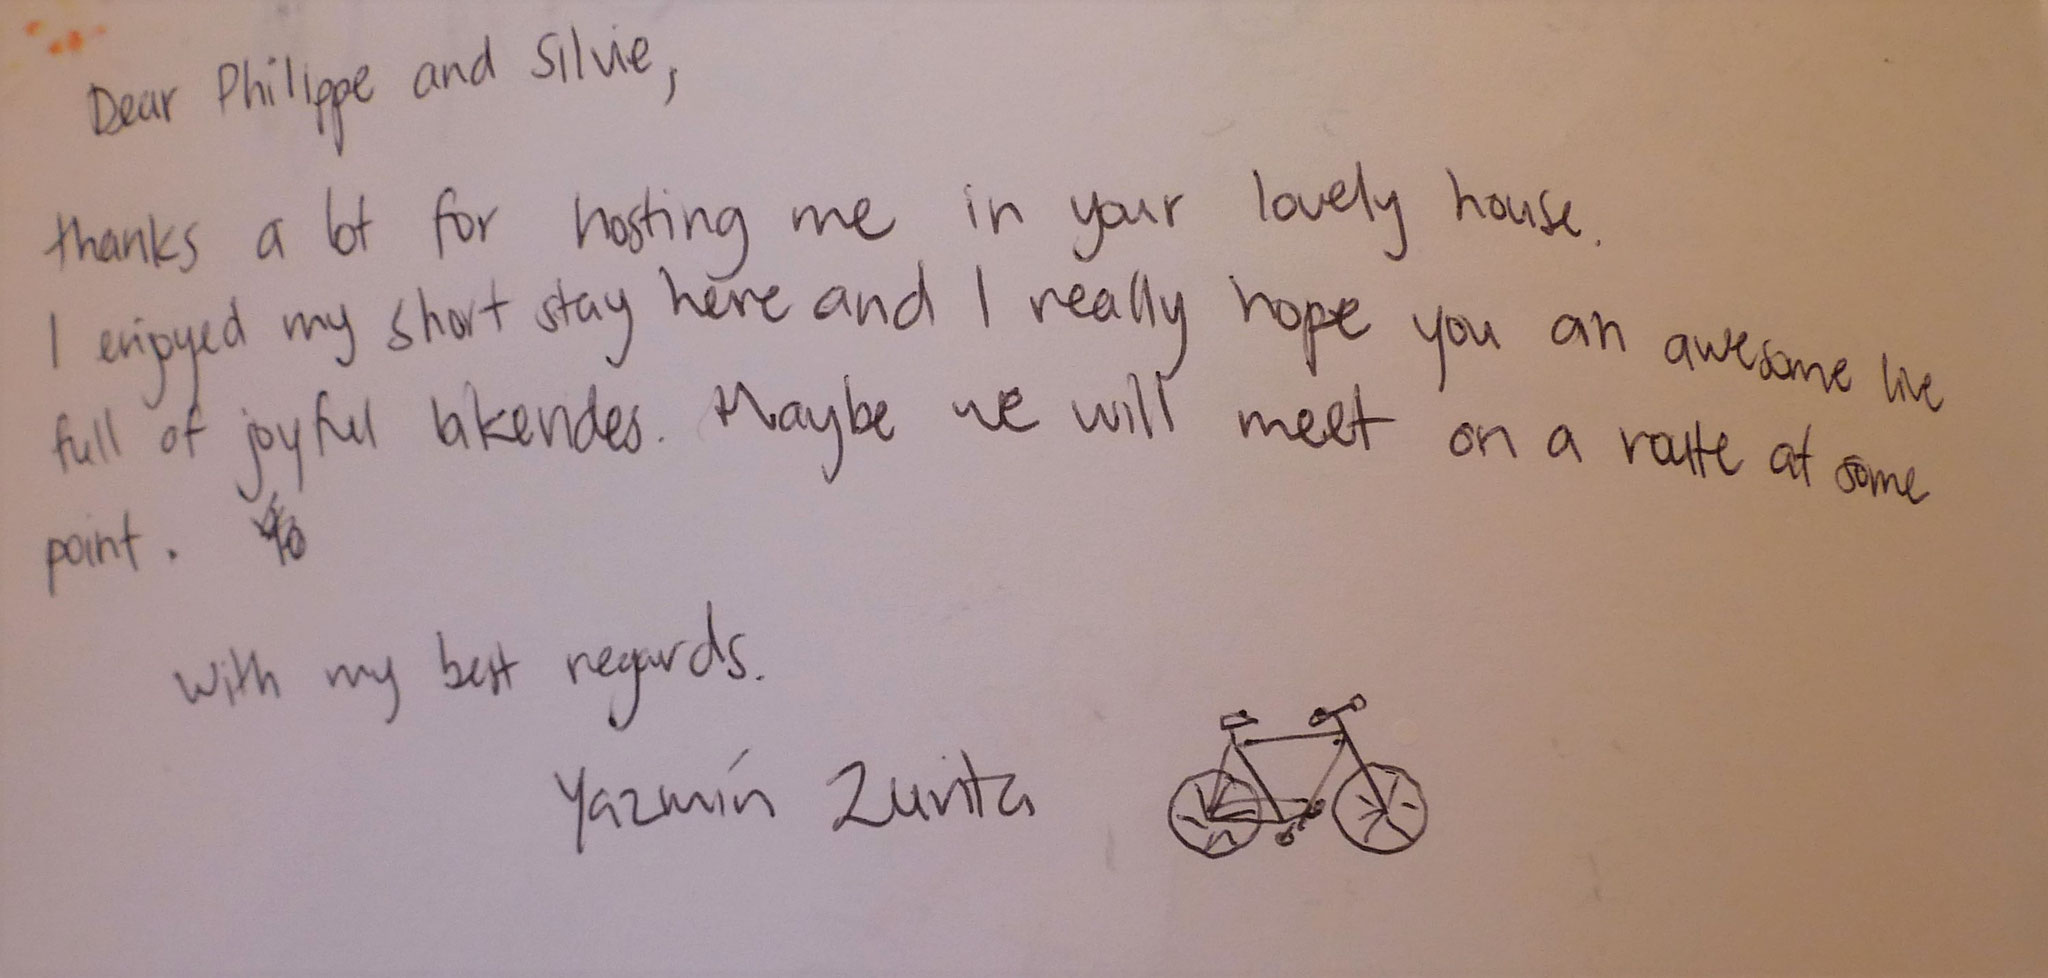 Dear Philippe and Silvie,
thanks a lot for hosting me in your lovely house.
I enjoyed my short stay here and I really hope you an awesome live
full of joyful bikerides. Maybe we will meet on a route at some
point.
with my best regards.
Yazmín Zurita